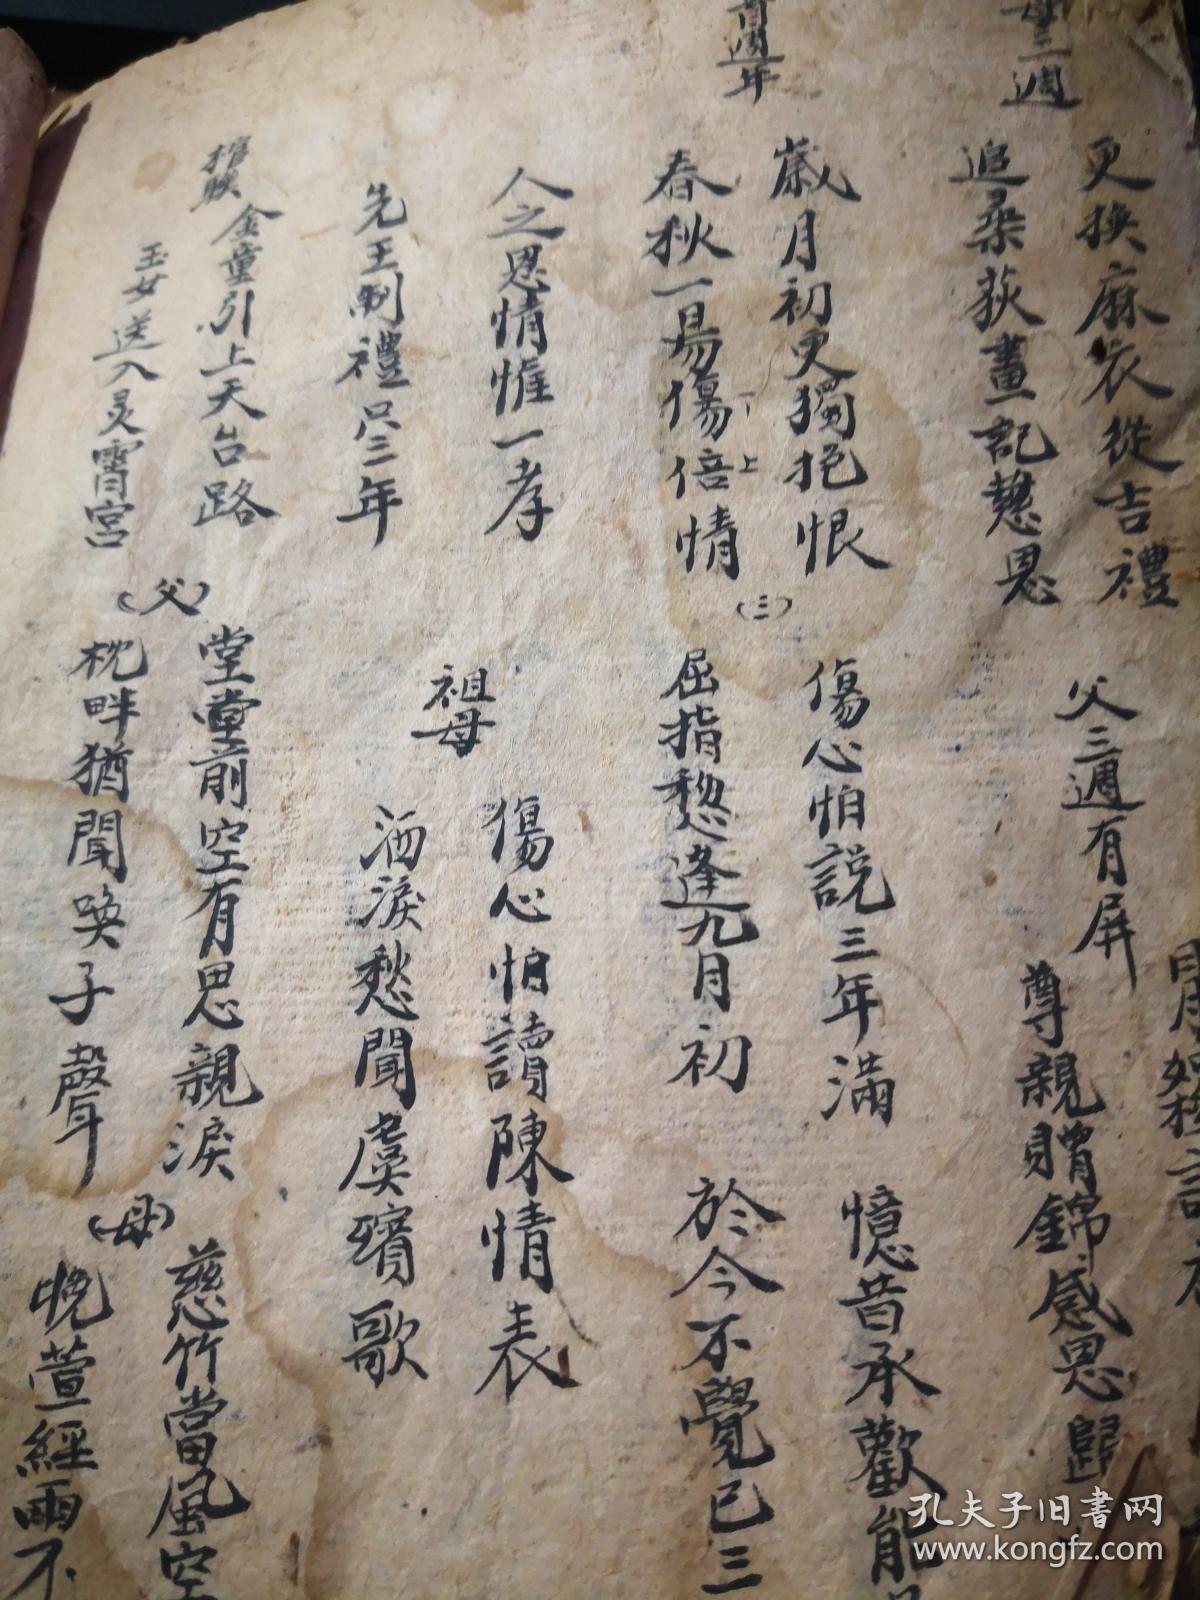 母三週
更換麻衣從吉禮
追桑荻畫記慈恩
父三週有屏
尊親贈錦感恩歸
首週年
歲月初更獨抱恨
春秋一易傷倍情
下
上
(三)
傷心怕説三年滿
屈指愁逢九月初
憶昔承歡能
於今不覺已三
人之恩情惟一孝
先王制禮只三年
祖母
傷心怕讀陳情表
洒淚愁聞虞殯歌
棺联
金童引上天台路
玉女送入灵霄宫
(父)
堂堂前空有思親淚
枕畔猶聞喚子聲
(母)
慈竹當風空
晚萱經雨不
孔夫子旧书网
www.kongfz.com